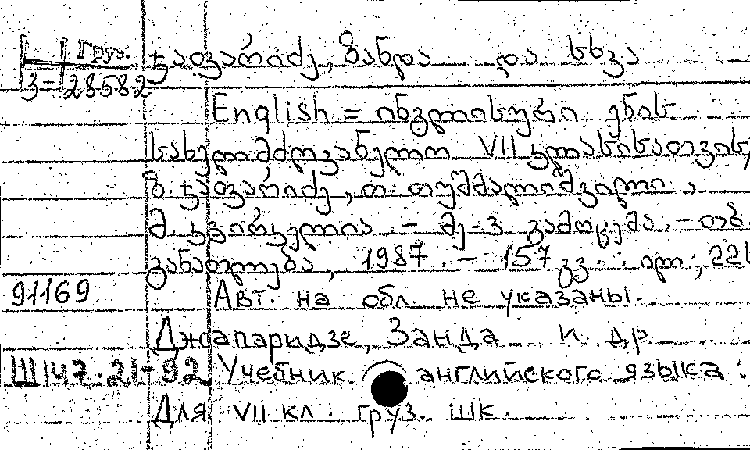 Груз.
3-28582 ჯაფარიძე, ზანდა და სხვა
English = ინგლისური ენის
სახელმძღვანელო VII კლასისათვის,
ზ. ჯაფარიძე, თ. თუმმალიშვილი,
მ. კვირკველია. – მე-3 გამოცემა. – თბ.
განათლება, 1987. – 157 გვ. ილ.; 221
91169 Авт. на обл. не указаны.
Джапаридзе, Занда и др.
Ш147.21-92 Учебник английского языка:
Для VII кл. груз. шк.